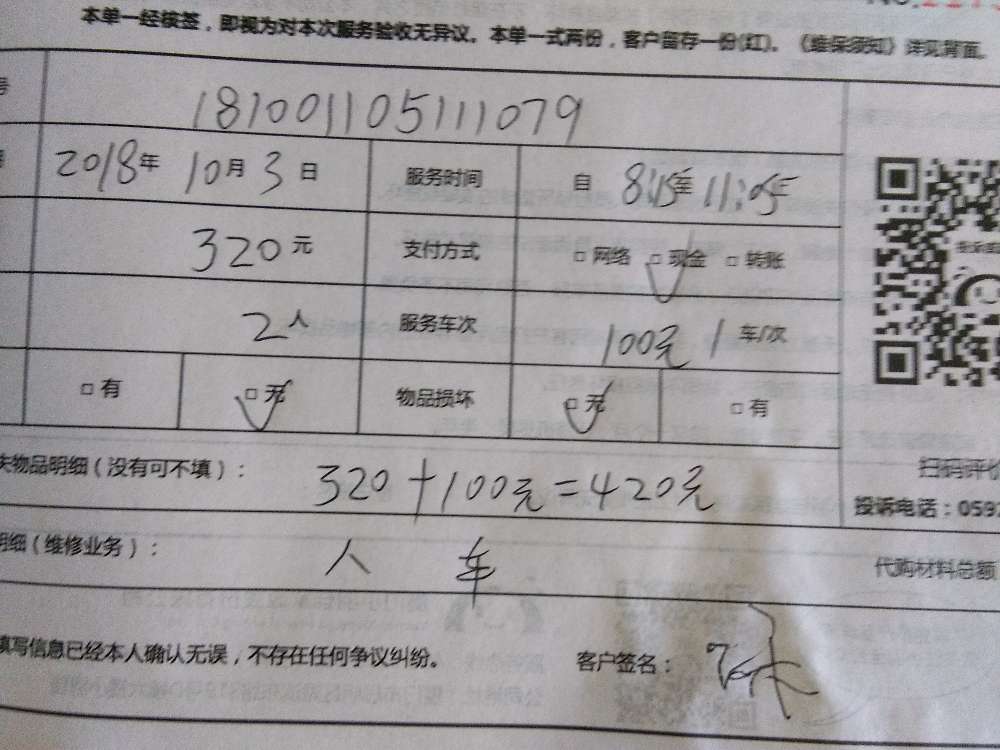 本单一经核签，即视为对本次服务验收无异议。本单一式两份，客户留存一份(红)。《维保须知》详见背面。
号 181001105111079
2018年 10月 3日 服务时间 自 8:15至 11:05
320元 支付方式 □网络 □现金 □转账
2人 服务车次 100元 1车/次
□有 □无 物品损坏 □无 □有
扫码评价
失物品明细（没有可不填）： 320+100元=420元
投诉电话：0592
明细（维修业务）： 人 车 代购材料总额
填写信息已经本人确认无误，不存在任何争议纠纷。 客户签名：